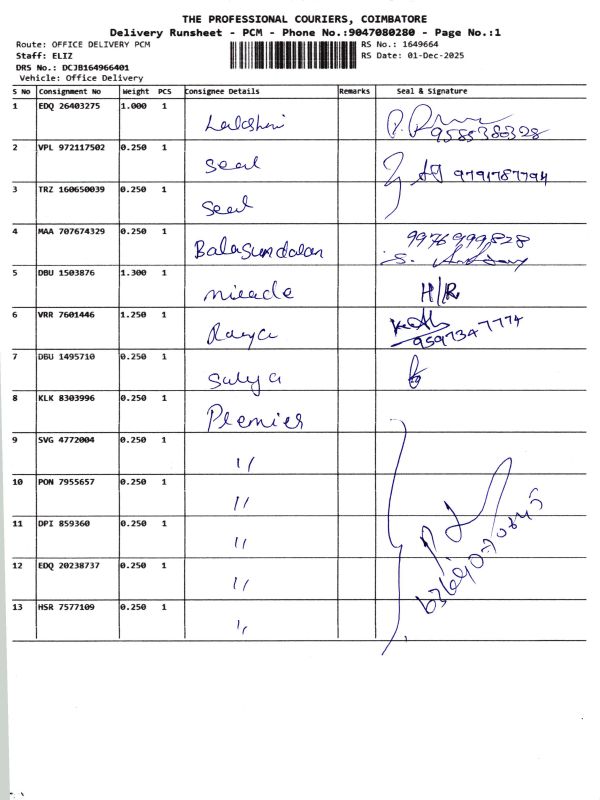 THE PROFESSIONAL COURIERS, COIMBATORE
Delivery Runsheet - PCM - Phone No.:9047080280 - Page No.:1
Route: OFFICE DELIVERY PCM RS No.: 1649664
Staff: ELIZ RS Date: 01-Dec-2025
DRS No.: DCJB164966401
Vehicle: Office Delivery
S No Consignment No Weight PCS Consignee Details Remarks Seal & Signature
1 EDQ 26403275 1.000 1 9585380328
2 VPL 972117502 0.250 1 Seal 9791787794
3 TRZ 160650039 0.250 1 Seal
4 MAA 707674329 0.250 1 Balasundaran 9976999828
5 DBU 1503876 1.300 1 H/R
6 VRR 7601446 1.250 1 9597347774
7 DBU 1495710 0.250 1 Satya
8 KLK 8303996 0.250 1 Premier
9 SVG 4772004 0.250 1 11
10 PON 7955657 0.250 1 11
11 DPI 859360 0.250 1 11
12 EDQ 20238737 0.250 1 11
13 HSR 7577109 0.250 1 11